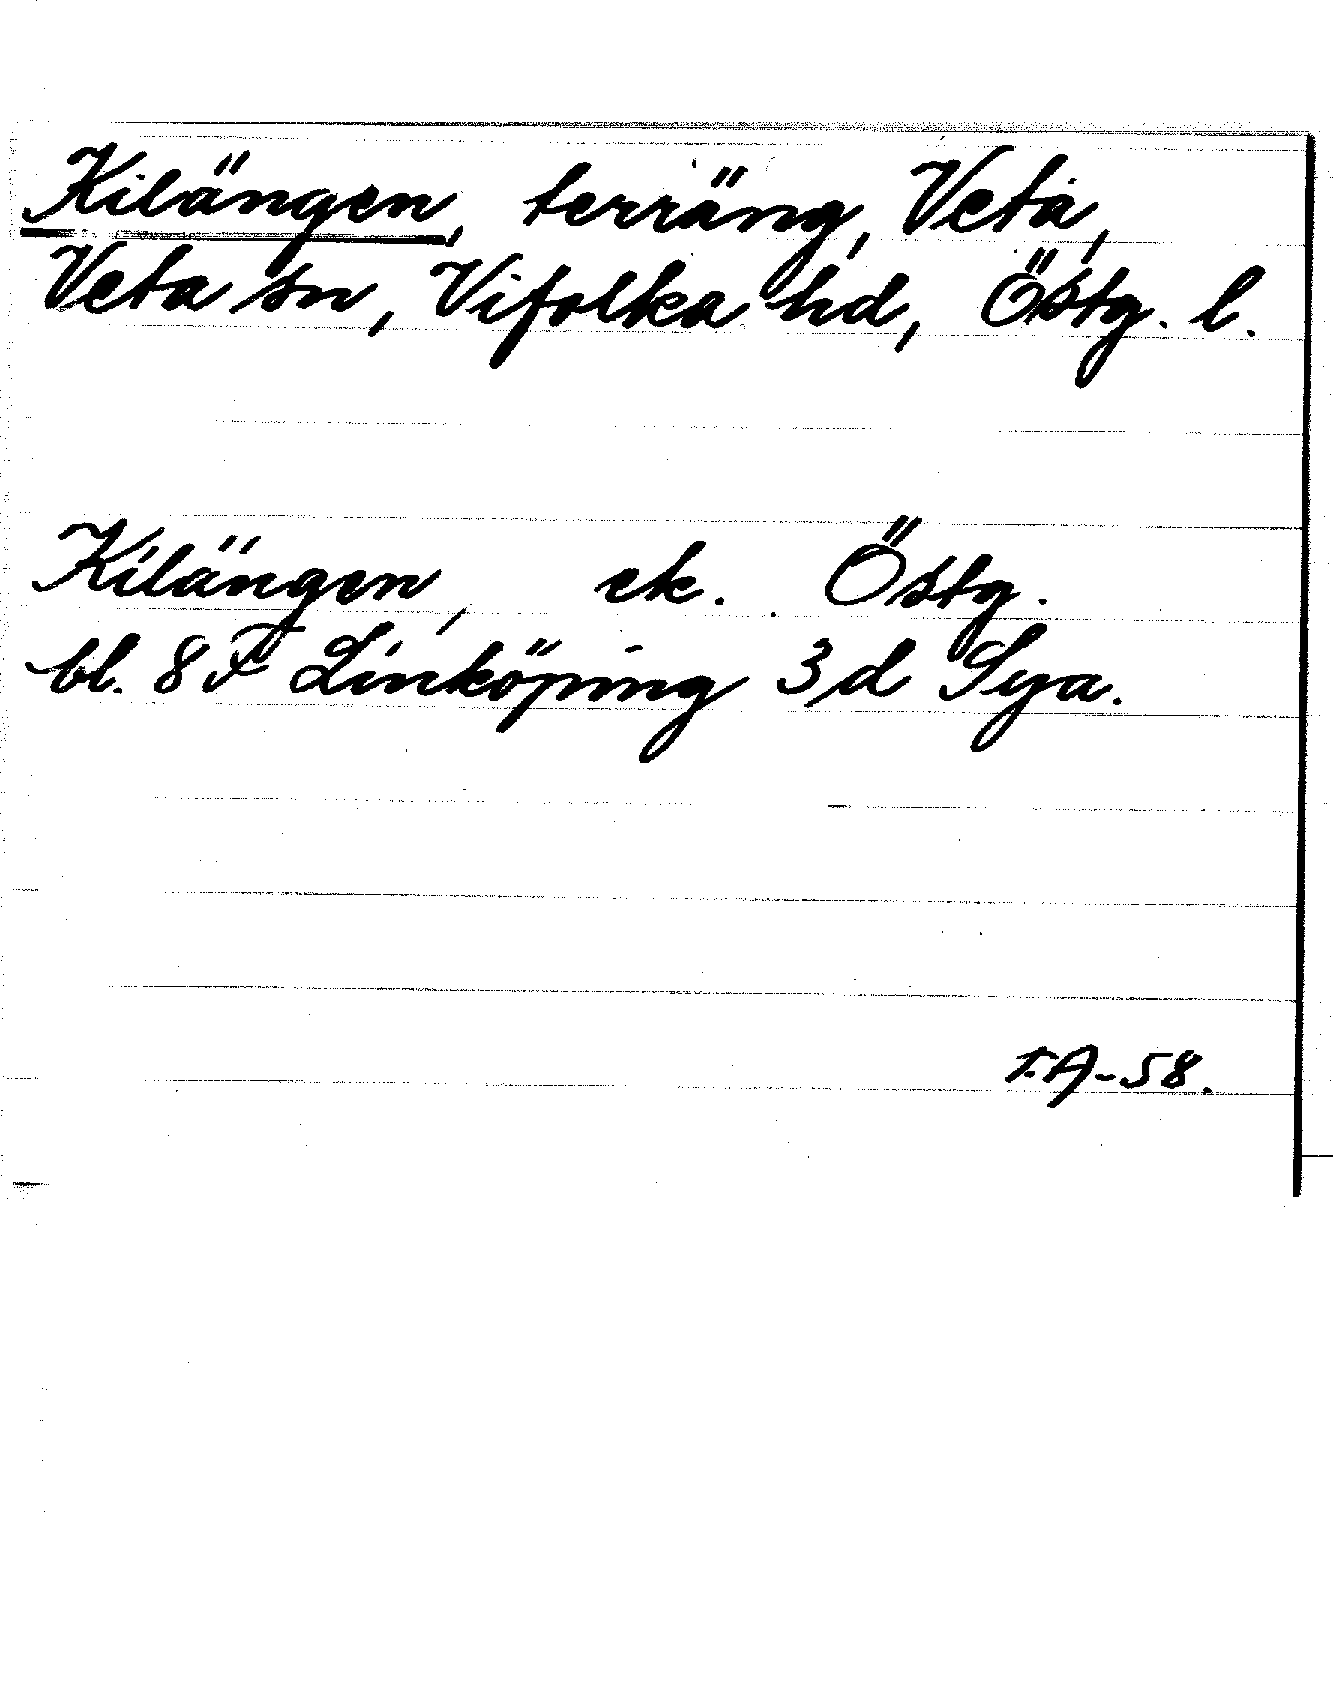 Kilängen, terräng, Veta,
Veta sn, Vifolka hd, Östg. l.
Kilängen, ek. Östg.
bl. 8 F Linköping 3 d Sya.
T.A-58.